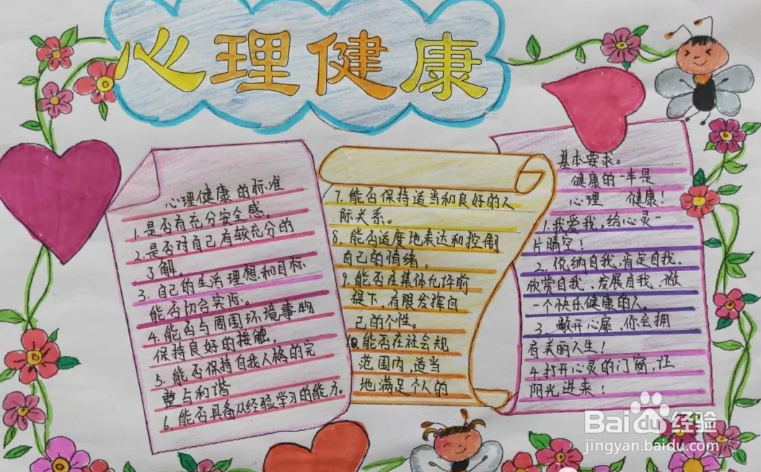 心理健康
心理健康的标准
1.是否有充分安全感。
2.是否对自己有较充分的
了解。
3.自己的生活理想和目标
能否切合实际。
4.能否与周围环境事物
保持良好的接触。
5.能否保持自我人格的完
整与和谐
6.能否具备从经验学习的能力。
7.能否保持适当和良好的人
际关系。
8.能否适度地表达和控制
自己的情绪。
9.能否在集体允许前
提下,有限发挥自
己的个性。
10.能否在社会规
范围内,适当
地满足个人的
基本要求。
健康的一半是
心理 健康!
1.我爱我,给心灵一
片晴空!
2.悦纳自我,肯定自我,
欣赏自我,发展自我,做
一个快乐健康的人。
3.敞开心扉,你会拥
有美丽人生!
4.打开心灵的门窗,让
阳光进来!
Baidu经验
jingyan.baidu.com